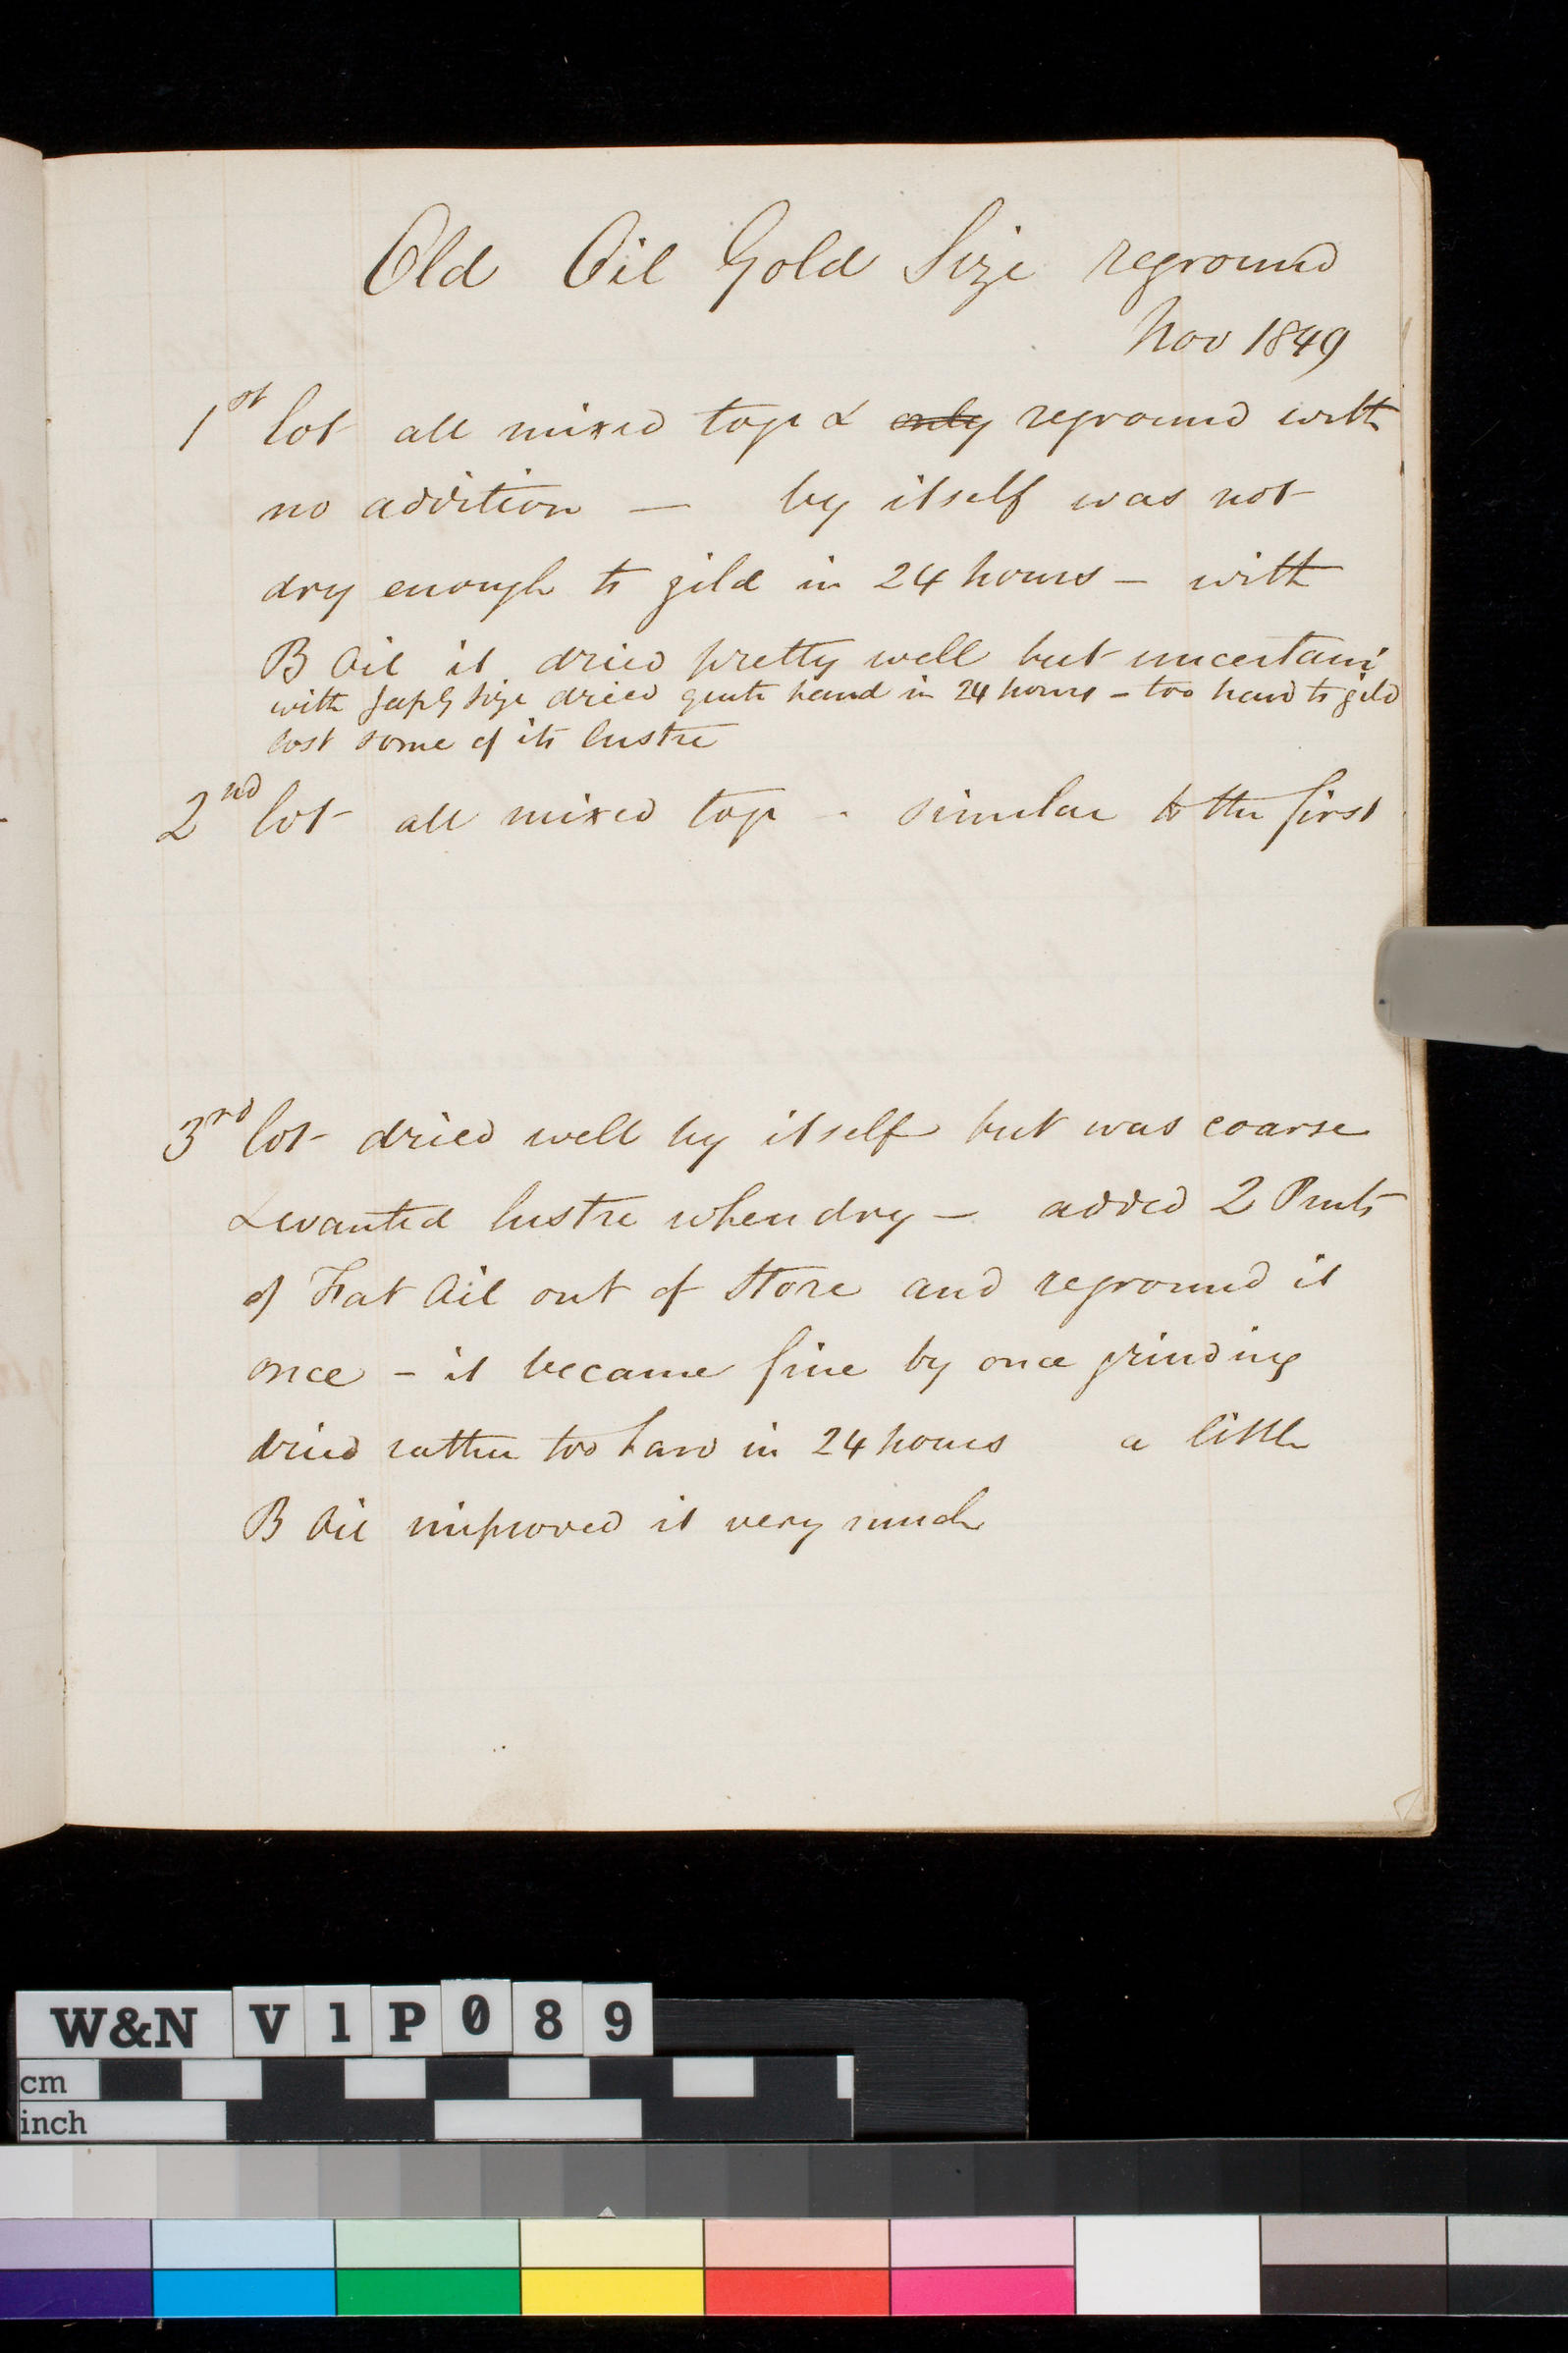 Old Oil Gold Size reground
Nov 1849
1st lot all mixed top & only reground with
no addition — by itself was not
dry enough to gild in 24 hours — with
B Oil it dried pretty well but uncertain
with Jap G Size dried quite hard in 24 hours — too hard to gild
lost some of its lustre
2nd lot all mixed top - similar to the first
3rd lot dried well by itself but was coarse
& wanted lustre when dry — added 2 Pints
of Fat Oil out of Store and reground it
once - it became fine by once grinding
dried rather too hard in 24 hours a little
B Oil improved it very much
W&N V1P089
cm
inch